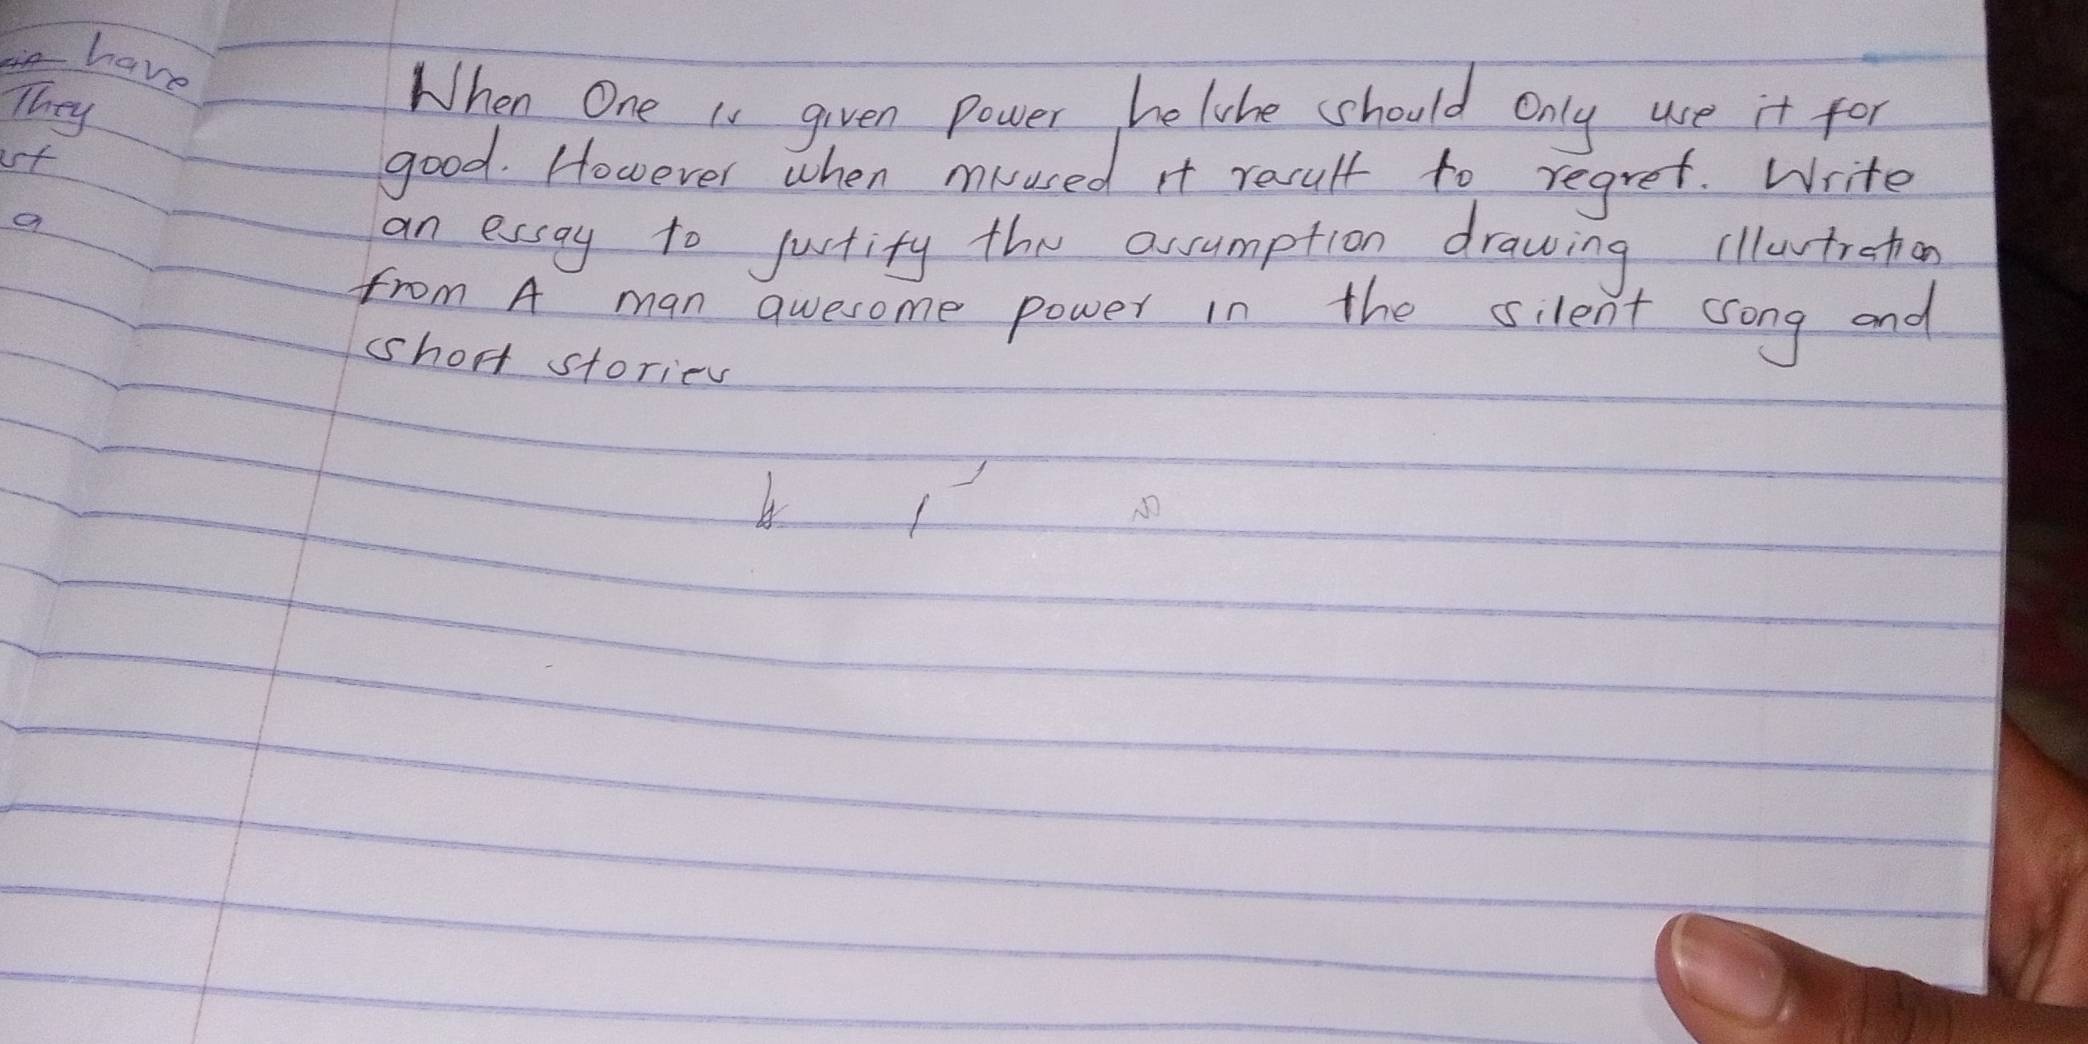 have
They
a
When One is given power he/she should only use it for
good. However when misused it result to regret. Write
an essay to justify this assumption drawing illustration
from A man awesome power in the silent song and
short stories